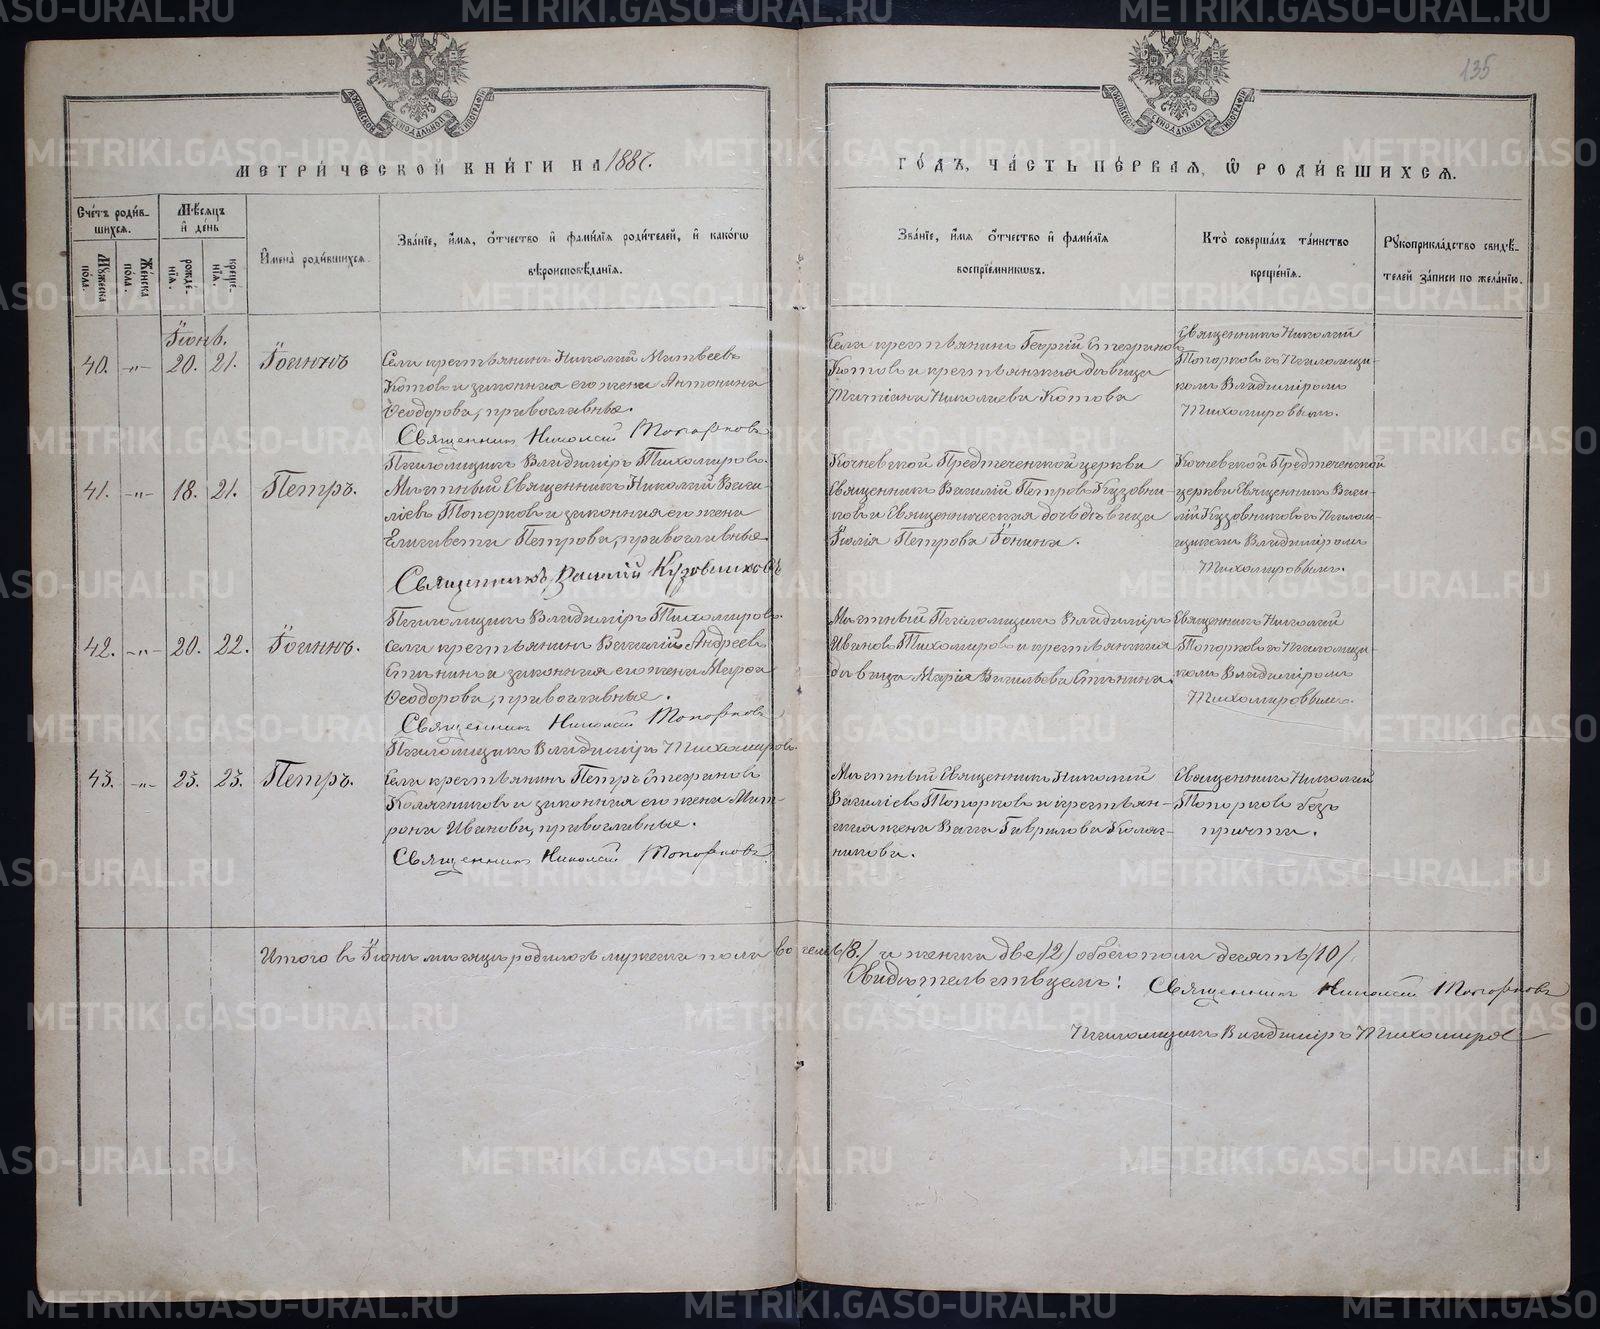 135
МЕТРИ́ЧЕСКОЙ КНИ́ГИ НА 1887.
ГО́ДЪ, ЧА́СТЬ ПЕ́РВАЯ, Ѡ РОДИ́ВШИХСѦ.
Сче́тъ роди́в-
шихсѧ.
Мꙋжеска по́ла.
Же́нска по́ла.
Мѣ́сѧцъ
и҆ де́нь
рожде́-
нїѧ.
креще́-
нїѧ.
И҆мена̀ роди́вшихсѧ.
Зва́нїе, и҆́мѧ, ѻ҆́тчество и҆ фами́лїѧ роди́телей, и҆ како́гѡ
вѣроисповѣ́данїѧ.
Зва́нїе, и҆́мѧ ѻ҆́тчество и҆ фами́лїѧ
воспрїе́мникѡвъ.
Кто̀ соверша́лъ та́инство
креще́нїѧ.
Рꙋкоприкла́дство свидѣ́-
телей за́писи по жела́нїю.
Іюнь.
40. -"- 20. 21. Іоаннъ
Села крестьянинъ Николай Матвеевъ
Котовъ и законная его жена Антонина
Ѳеодорова, православные.
Священникъ Николай Топорковъ
Псаломщикъ Владиміръ Тихомировъ.
Села крестьянинъ Георгій Стефановъ
Котовъ и крестьянская дѣвица
Татіана Николаева Котова
Священникъ Николай
Топорковъ съ Псаломщи-
комъ Владиміромъ
Тихомировымъ.
41. -"- 18. 21. Петръ.
Мѣстный Священникъ Николай Васи-
ліевъ Топорковъ и законная его жена
Елисавета Петрова, православные
Священникъ Василій Кузовниковъ
Псаломщикъ Владиміръ Тихомировъ.
Кочневской Предтеченской церкви
Священникъ Василій Петровъ Кузовни-
ковъ и Священническая дочь дѣвица
Юлія Петрова Іонина.
Кочневской Предтеченской
церкви Священникъ Васи-
лій Кузовниковъ съ Псалом-
щикомъ Владиміромъ
Тихомировымъ.
42. -"- 20. 22. Іоаннъ.
Села крестьянинъ Василій Андреевъ
Стѣнинъ и законная его жена Мавра
Ѳеодорова, православные.
Священникъ Николай Топорковъ
Псаломщикъ Владиміръ Тихомировъ.
Мѣстный Псаломщикъ Владиміръ
Ивановъ Тихомировъ и крестьянская
дѣвица Марія Васильева Стѣнина.
Священникъ Николай
Топорковъ съ Псаломщи-
комъ Владиміромъ
Тихомировымъ.
43. -"- 23. 23. Петръ.
Села крестьянинъ Петръ Стефановъ
Колягниковъ и законная его жена Мат-
рона Иванова, православные.
Священникъ Николай Топорковъ
Мѣстный Священникъ Николай
Василіевъ Топорковъ и крестьян-
ская жена Васса Гаврилова Коляг-
никова.
Священникъ Николай
Топорковъ безъ
причта.
Итого въ Іюнѣ мѣсяцѣ родилось мужеска пола восемь /8./ и женска две /2/ обоего пола десять /10/.
Свидѣтельствуемъ: Священникъ Николай Топорковъ
Псаломщикъ Владиміръ Тихомировъ
METRIKI.GASO-URAL.RU